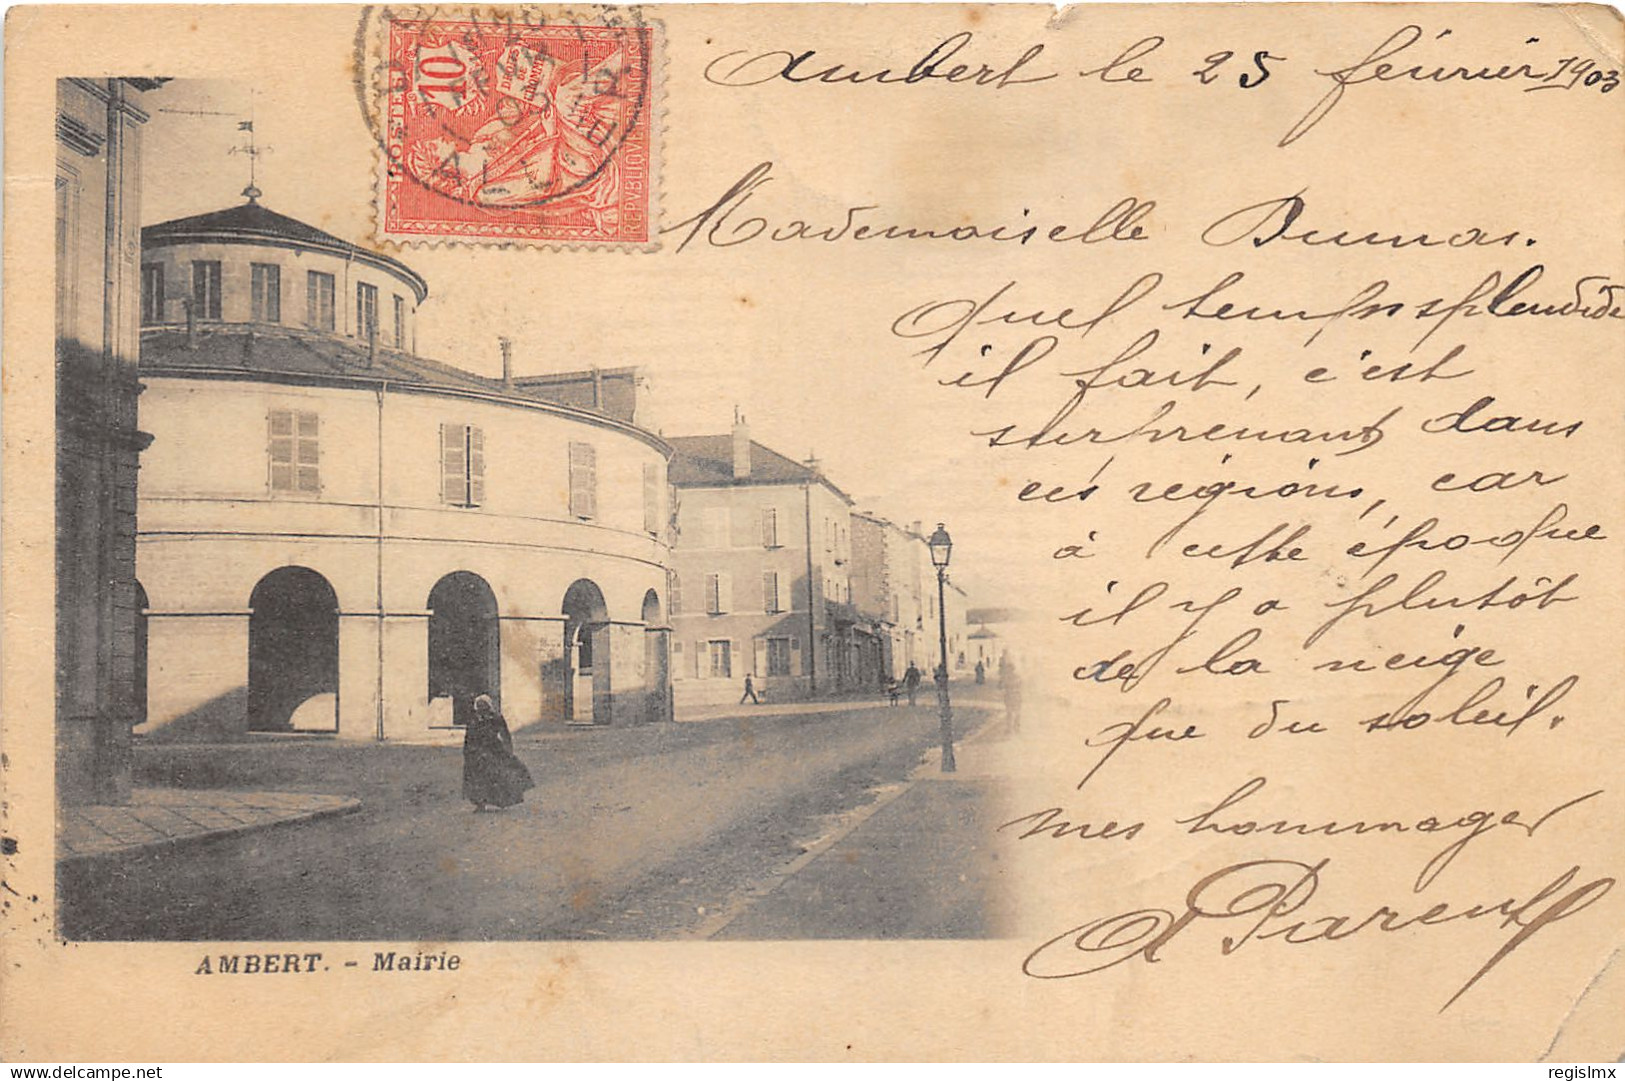 10
POSTES
DROITS
DE
L'HOMME
REPVBLIQVE FRANÇAISE
Ambert le 25 février 1903
Mademoiselle Dumas.
Quel temps splendide
il fait, c'est
surprenant dans
ces régions, car
à cette époque
il y a plutôt
de la neige
que du soleil.
mes hommages
A Parent
AMBERT. - Mairie
www.delcampe.net
regislmx